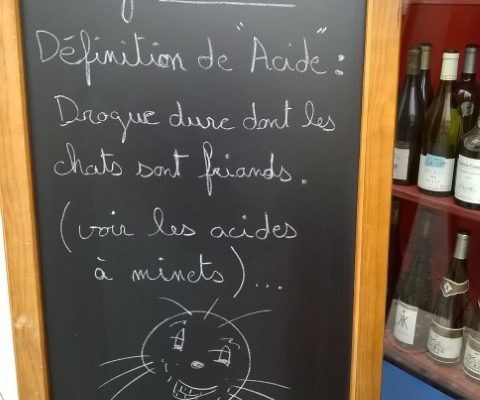 Définition de "Acide" :
Drogue dure dont les
chats sont friands.
(voir les acides
à minets)...